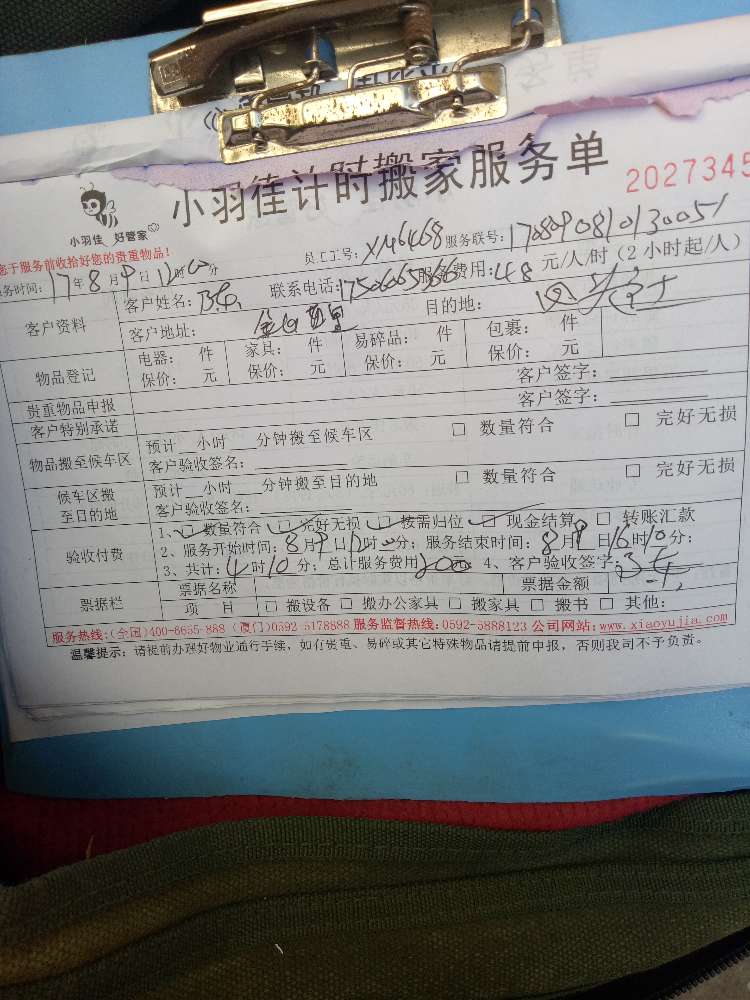 小羽佳计时搬家服务单
2027345
小羽佳 好管家
您于服务前收拾好您的贵重物品!
员工工号: XM6468 服务联号: 170809081013005
务时间: 17年8月9日12时00分
客户资料
客户姓名:
联系电话:
服务费用: 48 元/人/时(2小时起/人)
客户地址:
目的地:
物品登记
电器: 件 家具: 件 易碎品: 件 包裹: 件
保价: 元 保价: 元 保价: 元 保价: 元
贵重物品申报 客户签字:
客户特别承诺 客户签字:
物品搬至候车区
预计 小时 分钟搬至候车区 □ 数量符合 □ 完好无损
客户验收签名:
候车区搬
至目的地
预计 小时 分钟搬至目的地 □ 数量符合 □ 完好无损
客户验收签名:
验收付费
1、□ 数量符合 □ 完好无损 □ 按需归位 □ 现金结算 □ 转账汇款
2、服务开始时间: 8月9日12时00分; 服务结束时间: 8月9日16时10分;
3、共计: 4时10分; 总计服务费用 200元 4、客户验收签字:
票据栏
票据名称 票据金额
项 目 □ 搬设备 □ 搬办公家具 □ 搬家具 □ 搬书 □ 其他:
服务热线:(全国)400-6655-888 (厦门)0592-5178888 服务监督热线: 0592-5888123 公司网站: www.xiaoyujia.com
温馨提示: 请提前办理好物业通行手续, 如有贵重、易碎或其它特殊物品请提前申报, 否则我司不予负责。